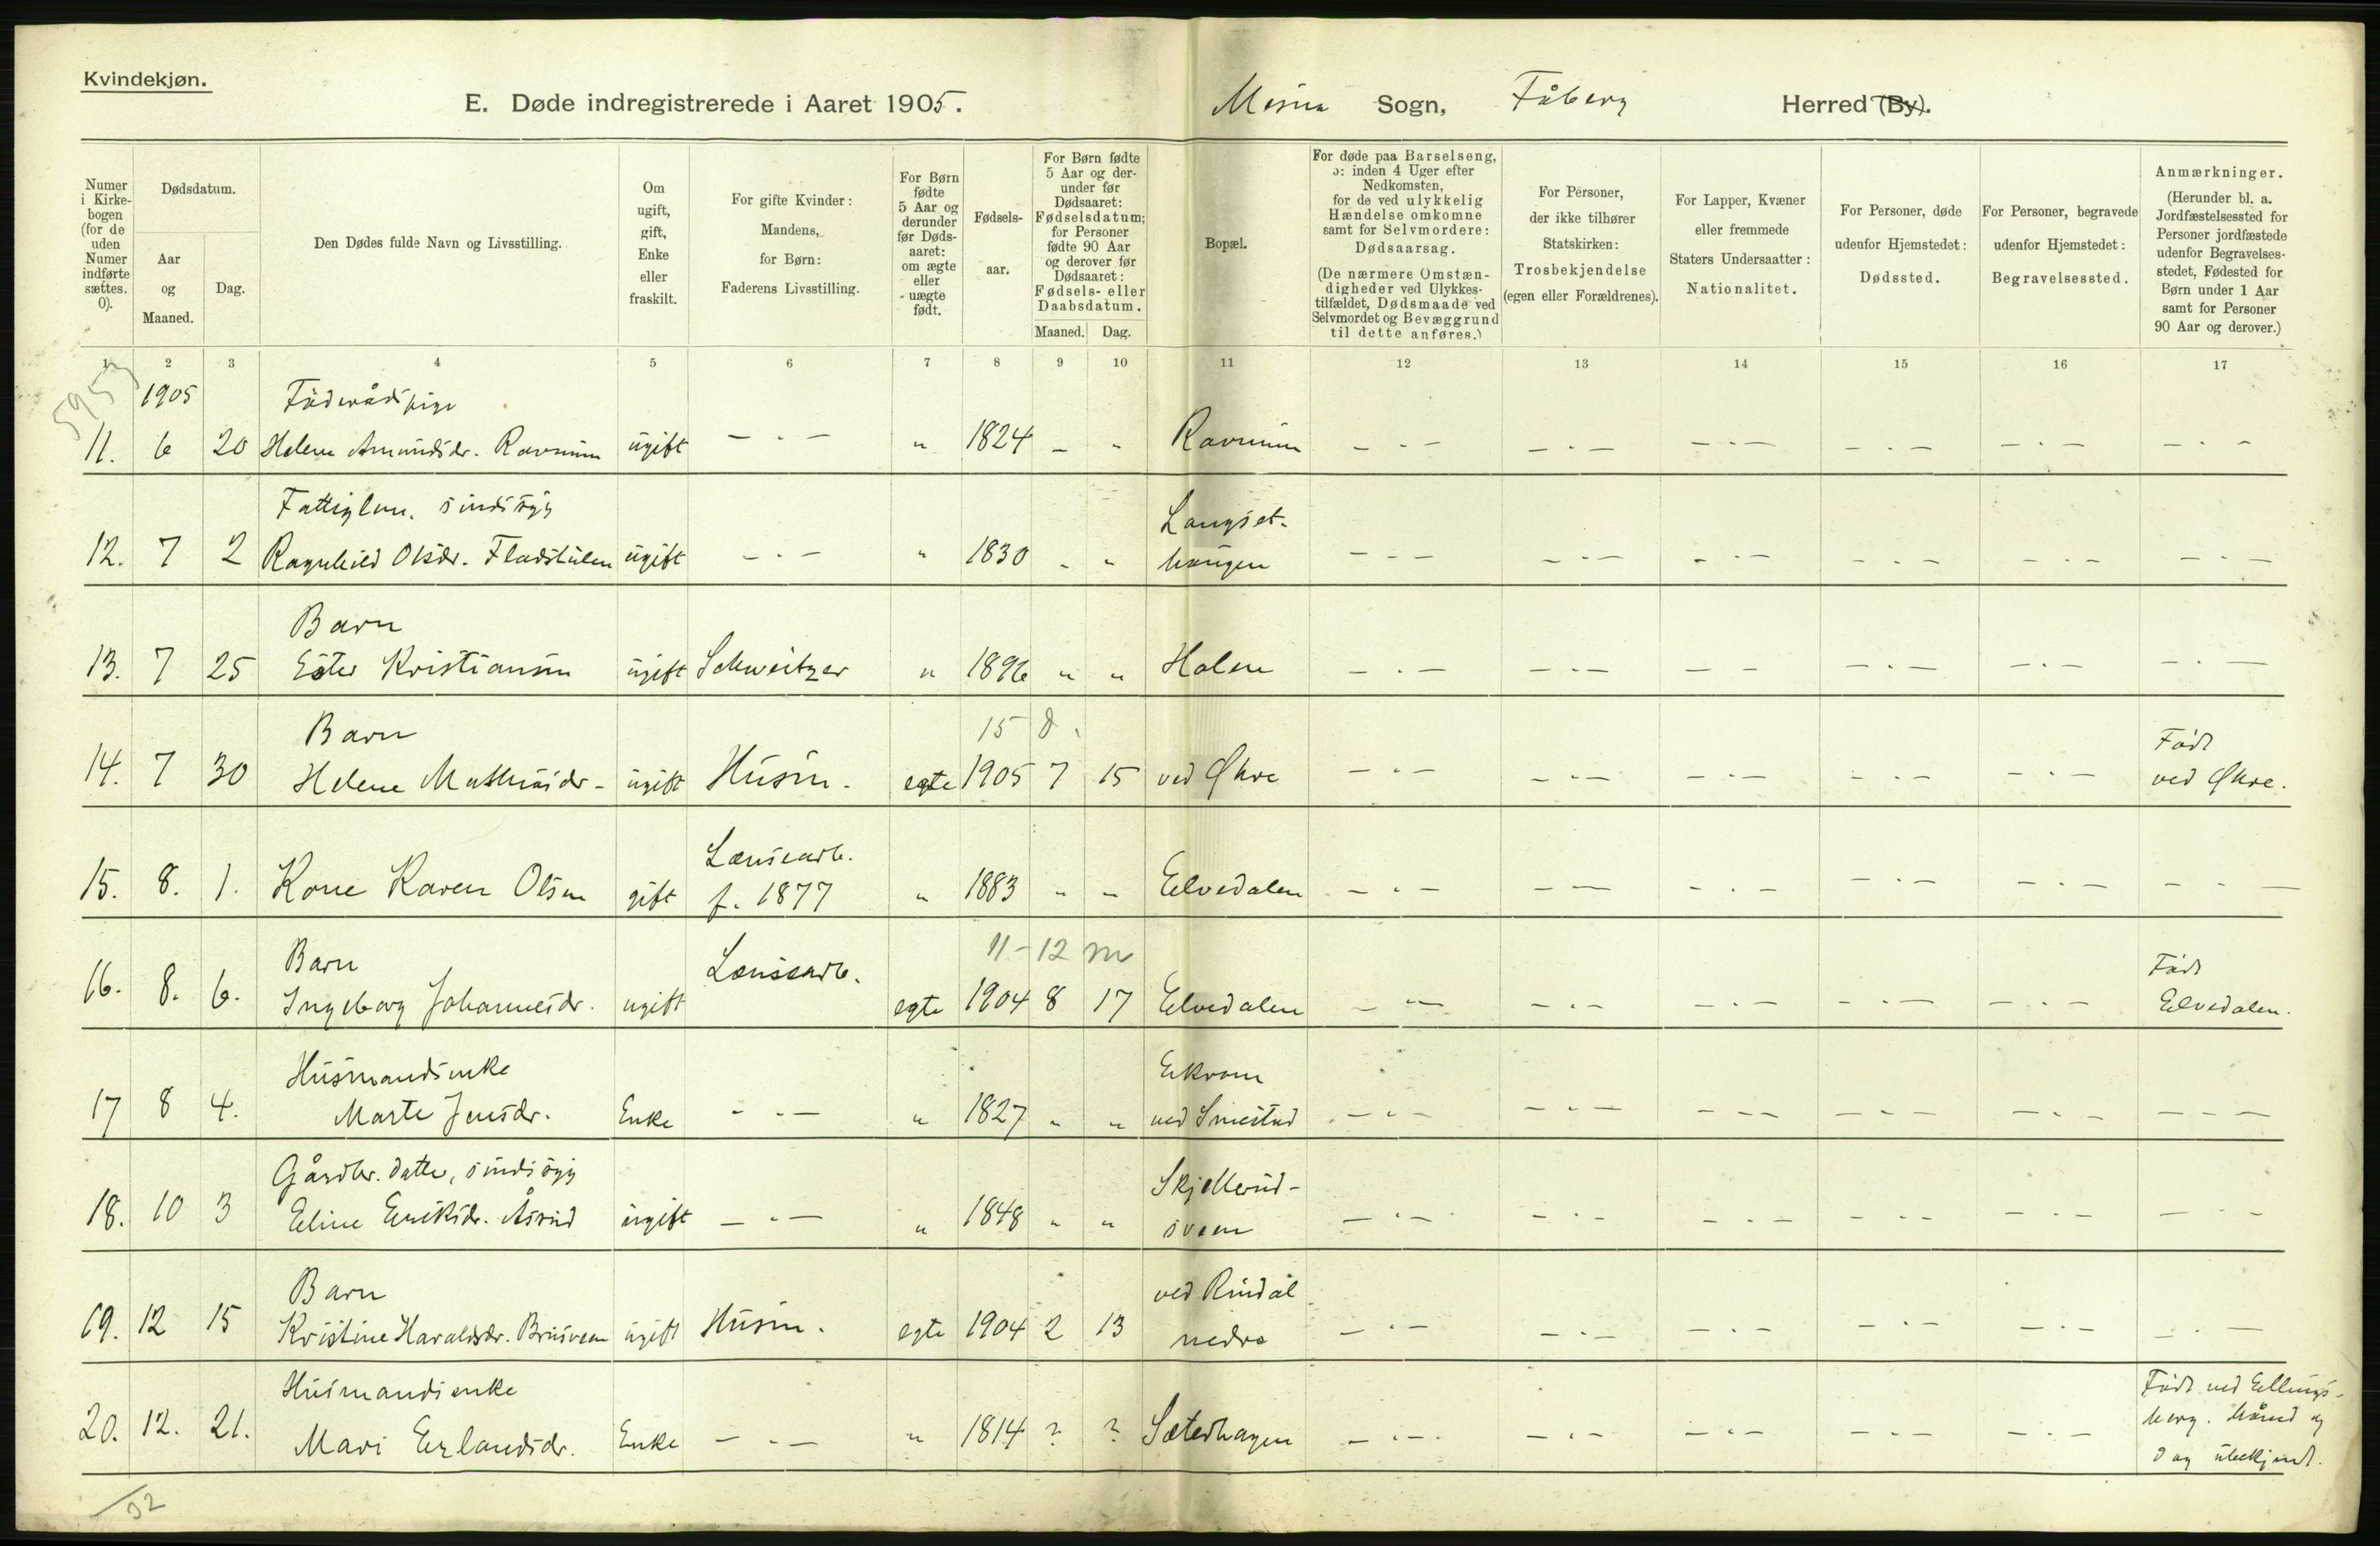 Kvindekjøn.
E. Døde indregistrerede i Aaret 1905. Mesna Sogn, Fåberg Herred (By).
Numer i Kirke-bogen (for de uden Numer indførte sættes. 0).
Dødsdatum.
Aar og Maaned.
Dag.
Den Dødes fulde Navn og Livsstilling.
Om ugift, gift, Enke eller fraskilt.
For gifte Kvinder: Mandens, for Børn: Faderens Livsstilling.
For Børn fødte 5 Aar og derunder før Døds-aaret: om ægte eller uægte født.
Fødsels-aar.
For Børn fødte 5 Aar og der-under før Dødsaaret: Fødselsdatum; for Personer fødte 90 Aar og derover før Dødsaaret: Fødsels- eller Daabsdatum.
Maaned. Dag.
Bopæl.
For døde paa Barselseng, ɔ: inden 4 Uger efter Nedkomsten, for de ved ulykkelig Hændelse omkomne samt for Selvmordere: Dødsaarsag.
(De nærmere Omstæn-digheder ved Ulykkes-tilfældet, Dødsmaade ved Selvmordet og Bevæggrund til dette anføres.)
For Personer, der ikke tilhører Statskirken: Trosbekjendelse (egen eller Forældrenes).
For Lapper, Kvæner eller fremmede Staters Undersaatter: Nationalitet.
For Personer, døde udenfor Hjemstedet: Dødssted.
For Personer, begravede udenfor Hjemstedet: Begravelsessted.
Anmærkninger.
(Herunder bl. a. Jordfæstelsessted for Personer jordfæstede udenfor Begravelses-stedet, Fødested for Børn under 1 Aar samt for Personer 90 Aar og derover.)
1 2 3 4 5 6 7 8 9 10 11 12 13 14 15 16 17
1905 Föderådspige
11. 6 20 Helene Amundsdr. Ravnum ugift - . - " 1824 - - Ravnum - . - - . - - . - - . - - . - - . -
Fattiglem. sindssyg Langset-
12. 7 2 Ragnhild Olsdr. Fladstulen ugift - . - " 1830 - " haugen - . - - . - - . - - . - - . - - . -
Barn
13. 7 25 Ester Kristiansen ugift Schweitzer " 1896 " " Holen - . - - . - - - - . - - . - - . -
Barn 15 d. Föd
14. 7 30 Helene Mathiasdr. ugift Husm. egte 1905 7 15 ved Økre - . - - . - - . - - . - - . - ved Økre.
Lensearb.
15. 8. 1. Kone Karen Olsen gift f. 1877 " 1883 " " Elvedalen - . - - - - . - - . - - . - - . -
Barn Lensearb. 11-12 m Föd
16. 8. 6. Ingeborg Johannesdr. ugift egte 1904 8 17 Elvedalen - . - - . - - . - - . - - . - Elvedalen.
Husmandsenke Ekrom
17 8 4. Marte Jensdr. Enke - . - " 1827 " " ved Smestad - . - - . - - . - - - - - . - - - -
Gårdbr. datter, sindssyg Skjellerud-
18. 10 3 Eline Eriksdr. Åsrud ugift - . - " 1848 " " sveen - . - - . - - . - - . - - . - - . -
Barn ved Rindal
19. 12 15 Kristine Haraldsdr. Brusveen ugift Husm. egte 1904 2 13 nedre - . - - . - - . - - . - - . - - . -
Husmandsenke Född ved Ellings-
20. 12. 21. Mari Erlandsdr. Enke - . - " 1814 ? ? Sæterhagen - . - - . - - . - - . - - . - berg. Måned og
dag ubekjent.